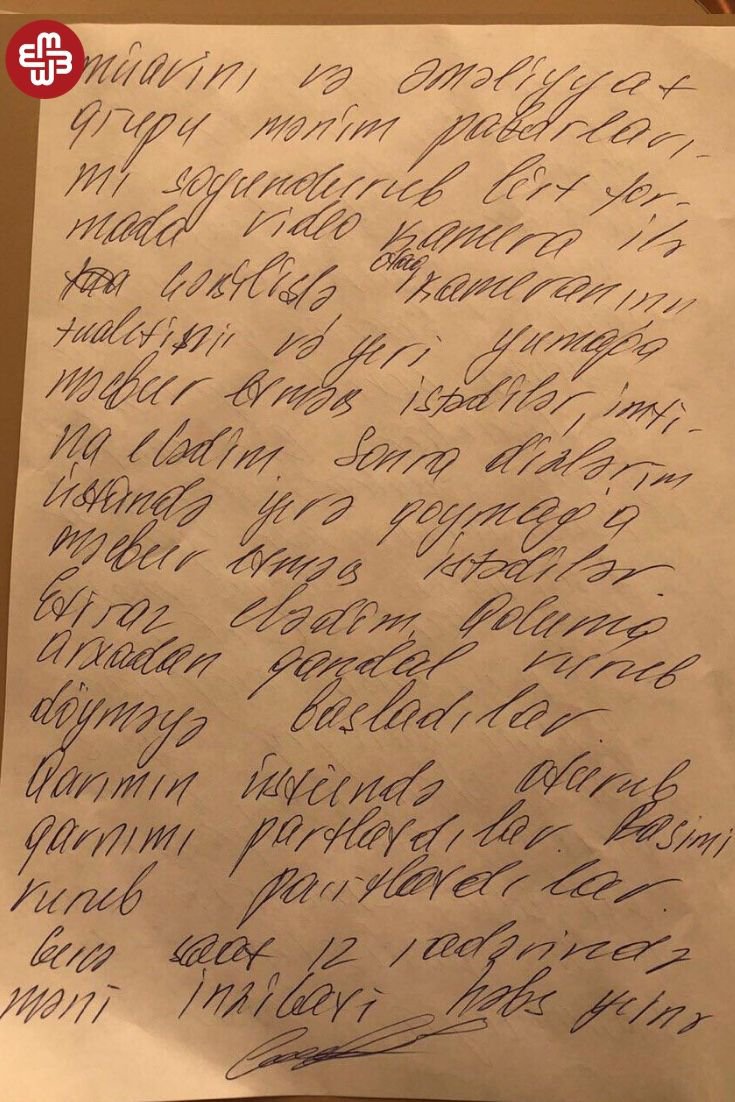 müavini və əməliyyat
qrupu mənim paltarları-
mı soyundurub lüt for-
mada video kamera ilə
çəkilişlə, otaq kameranını
tualetini və yeri yumağa
məcbur etmək istədilər, imti-
na elədim. Sonra dizlərim
üstündə yerə qoymağ'a
məcbur etmək istədilər.
Etiraz elədim. Qoluma
arxadan qandal vurub
döyməyə başladılar.
Qarımın üstündə oturub
qarnımı partlatdılar. Başımı
vurub partlatdılar.
Gecə saat 12 radərində
məni inzibati həbs yerinə